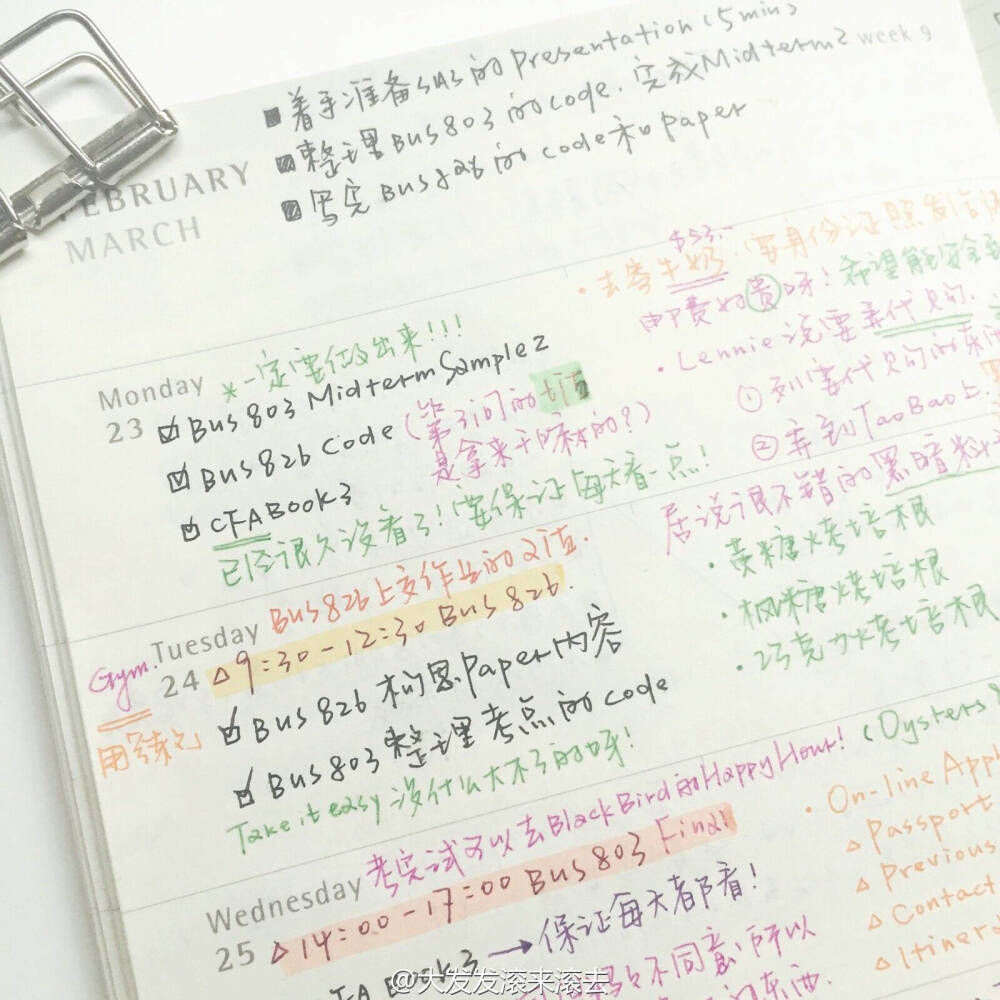 ■着手准备SUS的Presentation(5min)
week 9
■整理Bus803的code.完成Midterm2
■写完Bus826的code和paper
FEBRUARY
MARCH
$53.-
•去寄牛奶.(要身份证照发
邮费好贵呀!希望能安全到
•Lennie说要弄代购.
①列要代购的东西
②弄到TaoBao上.
居说很不错的黑暗料
•黄糖烤培根
•枫糖烤培根
•巧克力烤培根
Monday
23
*一定要做出来!!!
☑Bus803 Midterm Sample2
☑Bus826 Code(第3问的t值
是拿来干嘛的?)
☑CFA Book3
已经很久没看了!要保证每天看一点!
Tuesday
24
Bus826上交作业的Q值.
△9:30-12:30 Bus826.
Gym.
☑Bus826 构思Paper内容
☑Bus803整理考点的code
Take it easy 没什么大不了的呀!
Wednesday
25
考完试可以去BlackBird的HappyHour!(Oysters)
△14:00-17:00 Bus803 Final
CFA Book3→保证每天都看!
不同意,所以
东西.
•On-line Appl
△Passport
△Previous
△Contact
△Itinera
@大发发滚来滚去